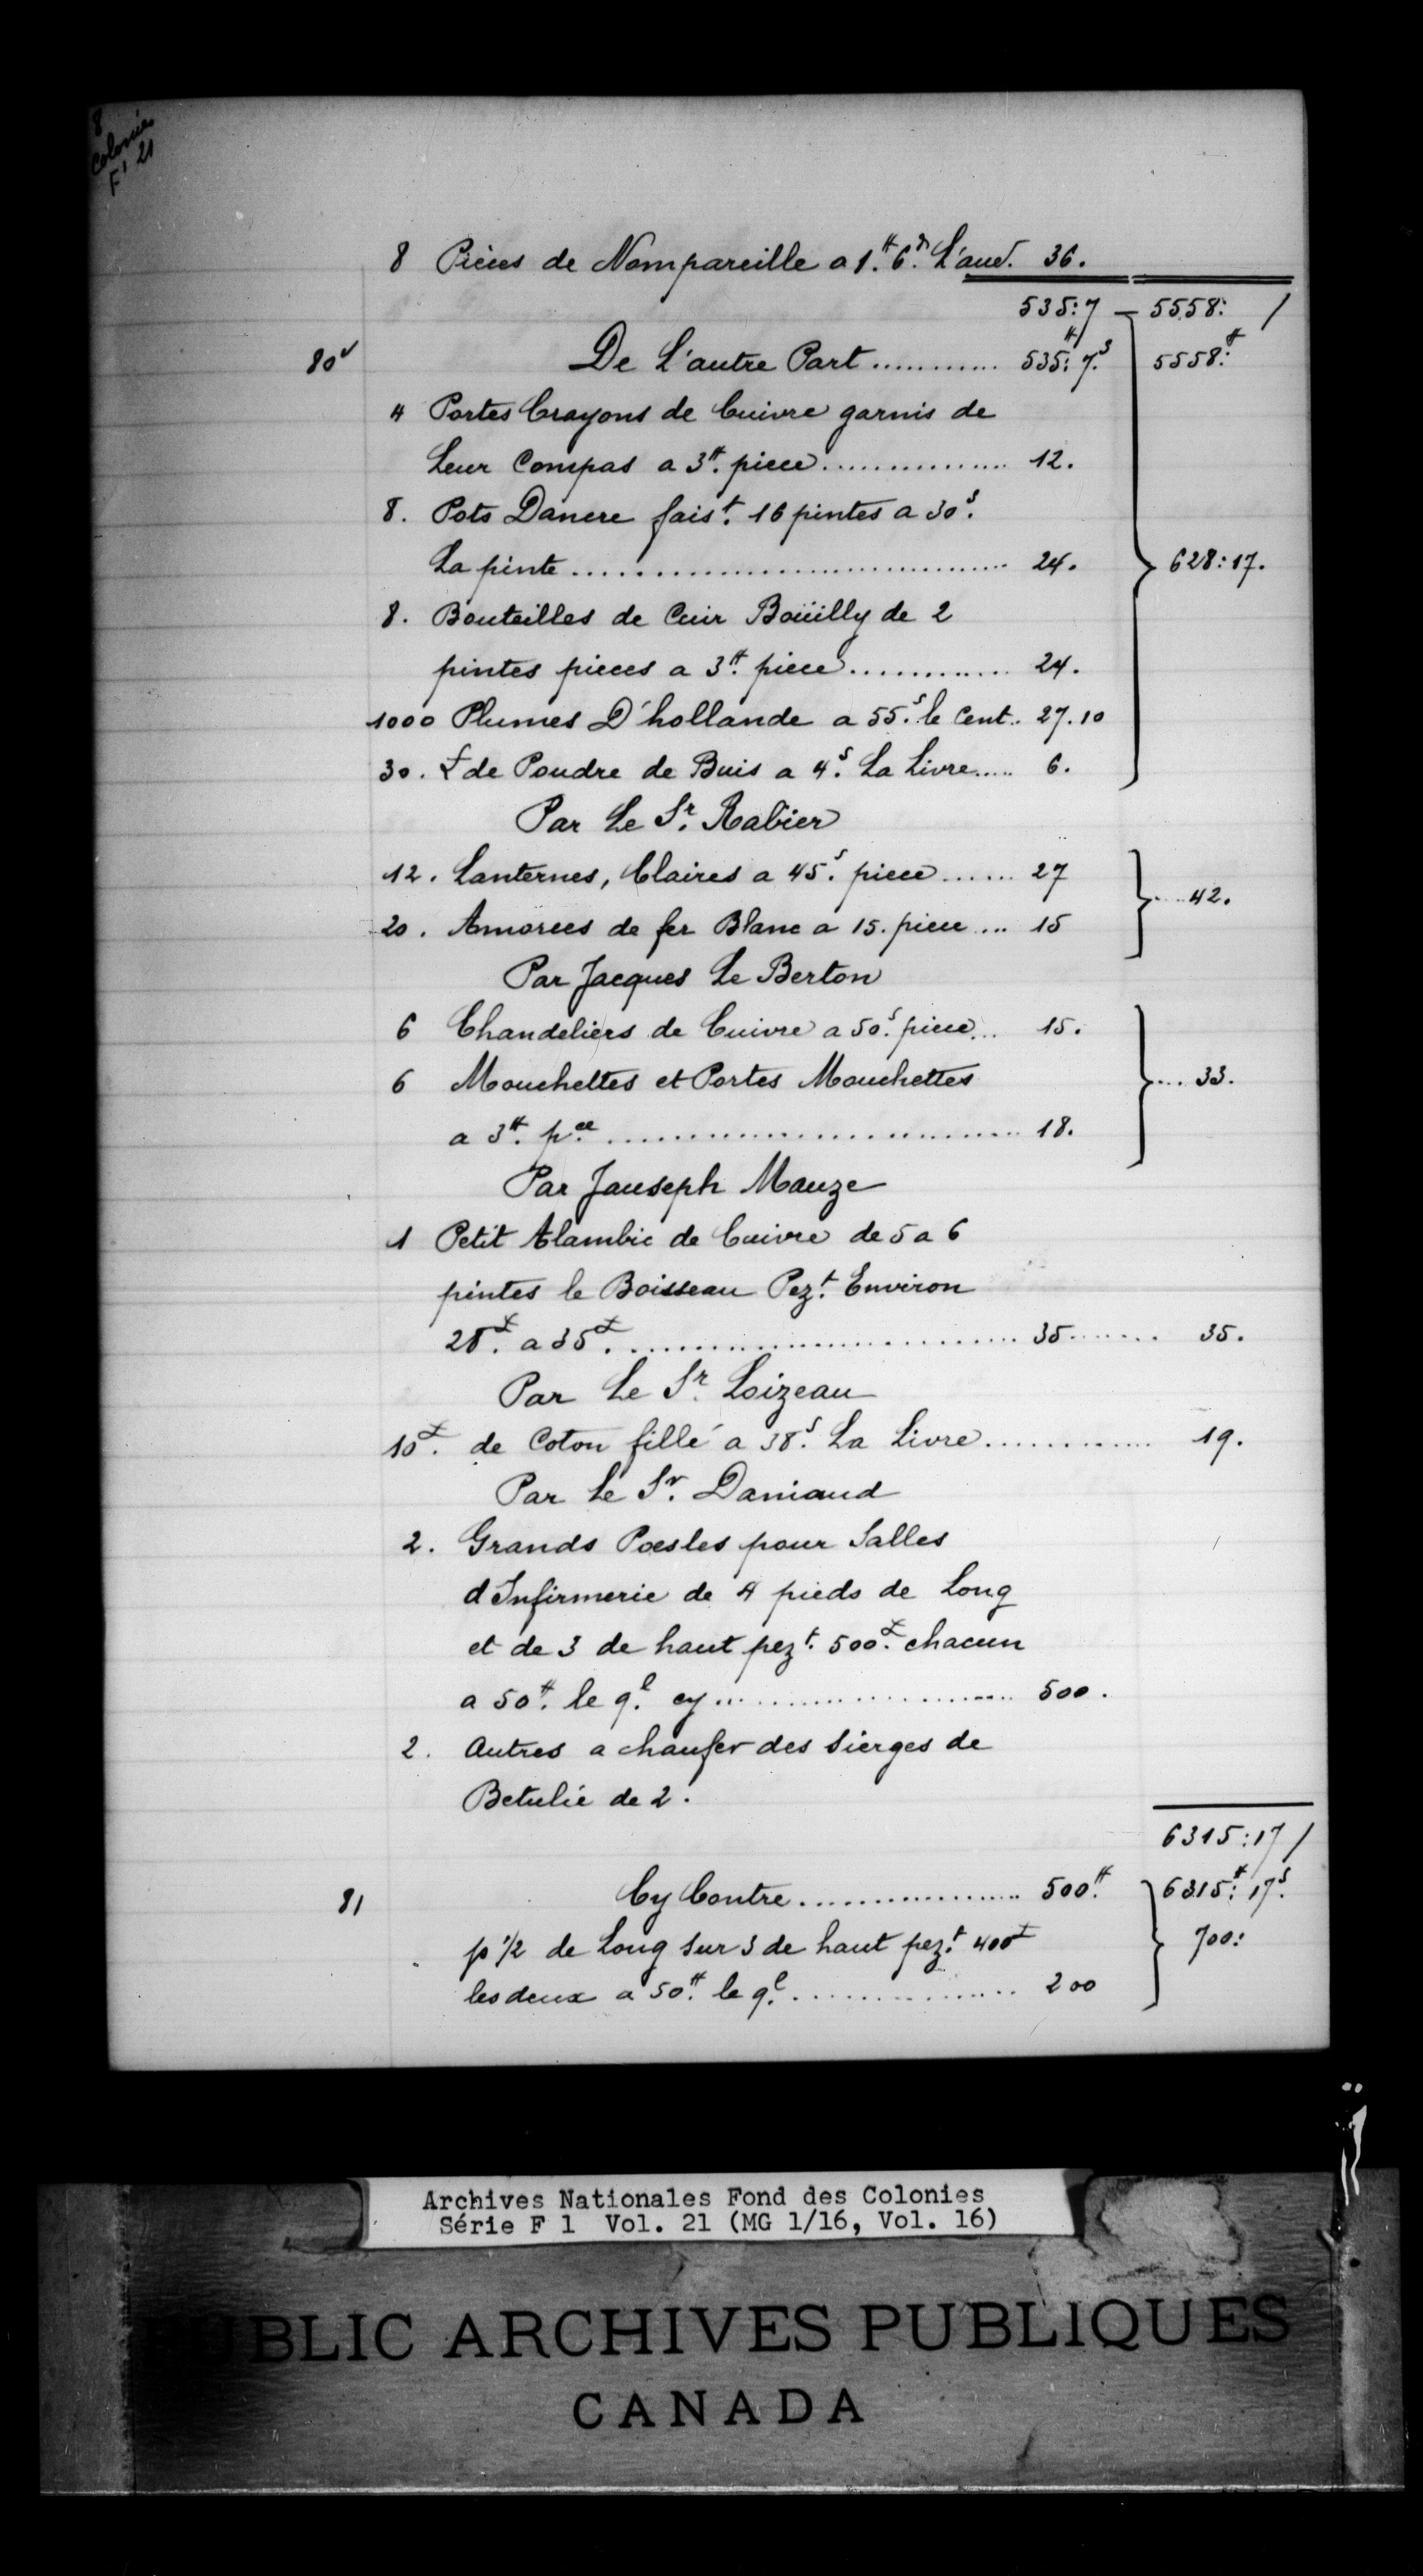 8
Colonies
F¹ 21
8 Pièces de Nompareille a 1.# 6.d L'aud. 36.
535:7 — 5558: /
80v De L'autre Part ............ 535:# 7.s 5558:#
4 Portes Crayons de Cuivre garnis de
Leur Compas a 3#. piece ............... 12.
8. Pots Dancre fais.t 16 pintes a 30.s
La pinte ................................ 24. 628:17.
8. Bouteilles de Cuir Boüilly de 2
pintes pieces a 3#. piece ............ 24.
1000 Plumes D'hollande a 55.s le Cent.. 27.10
30. £ de Poudre de Buis a 4.s La Livre..... 6.
Par Le Sr. Rabier
12. Lanternes, Claires a 45.s piece ...... 27
....42.
20. Amorces de fer Blanc a 15. piece ... 15
Par Jacques Le Berton
6 Chandeliers de Cuivre a 50.s piece... 15.
6 Mouchettes et Portes Mouchettes .... 33.
a 3#. p.ce .............................. 18.
Par Jauseph Mauze
1 Petit Alambic de Cuivre de 5 a 6
pintes le Boisseau Pez.t Environ
28£. a 35£. ............................. 35 ........ 35.
Par Le Sr. Loizeau
10£. de Coton fillé a 38.s La Livre ............. 19.
Par Le Sr. Daniaud
2. Grands Poesles pour Salles
d'Infirmerie de 4 pieds de Long
et de 3 de haut pez.t 500£. chacun
a 50#. le q.l cy ...................... 500.
2. Autres a chaufer des Sierges de
Betulie de 2.
6315:17 /
81 Cy Contre .................. 500.# 6315:# 17.s
p 1/2 de Long sur 3 de haut pez.t 400£ 700:
les deux a 50.# le q.l ................ 200
Archives Nationales Fond des Colonies
Série F 1 Vol. 21 (MG 1/16, Vol. 16)
PUBLIC ARCHIVES PUBLIQUES
CANADA